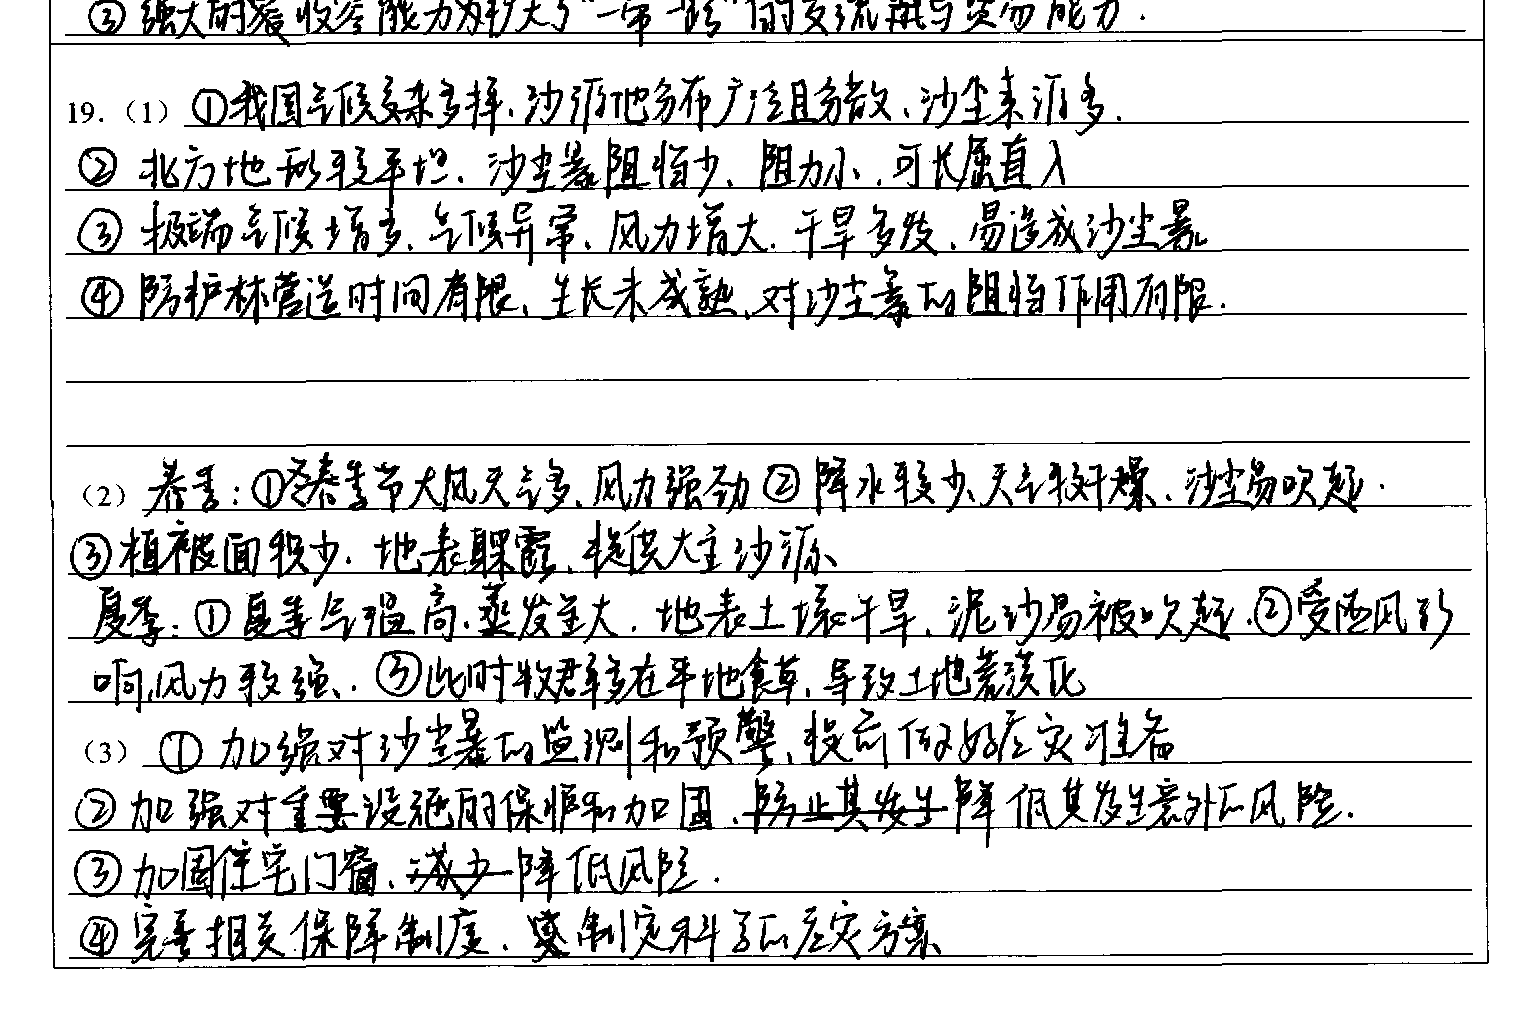 ③强大的聚收容能力为扩大了“一带一路”的交流能与贸易能力.
19.（1）①我国气候复杂多样、沙源地分布广泛且分散、沙尘来源多.
② 北方地形较平坦、沙尘暴阻挡少、阻力小、可长屈直入
③ 极端气候增多、气候异常、风力增大、干旱多发、易造成沙尘暴
④ 防护林营造时间有限、生长未成熟、对沙尘暴的阻挡作用有限.
（2）春季：①春季节大风天气多、风力强劲②降水较少、天气较干燥、沙尘易吹起.
③植被面积少、地表裸露、提供大主沙源
夏季：①夏季气温高、蒸发量大、地表土壤干旱、泥沙易被吹起.②受西风影
响,风力较强、③此时牧群多在平地食草,导致土地荒漠化
（3）①加强对沙尘暴的监测和预警、提前做好应灾准备
②加强对重要设施的保护和加固、防止其发生降低其发生意外的风险.
③加固住宅门窗、减少降低风险.
④完善相关保障制度、制定科学的应灾方案